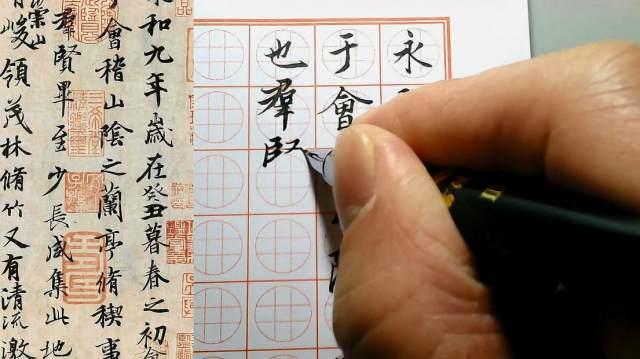 永
于會
也羣
和九年歲在癸丑暮春之初會
會稽山陰之蘭亭脩稧事
羣賢畢至少長咸集此地
崇山
峻領茂林脩竹又有清流激